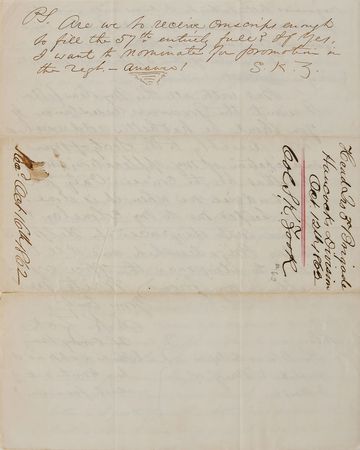 PS. Are we to receive conscrips enough
to fill the 57th entirely full? If yes.
I want to nominate for promotion in
the regt. – Answer!
S. K. Z.
Head Qrs 3d Brigade
Hancocks Division
Oct 12th, 1862
Col. S. K. Zook
Rec. Oct 16th, 1862